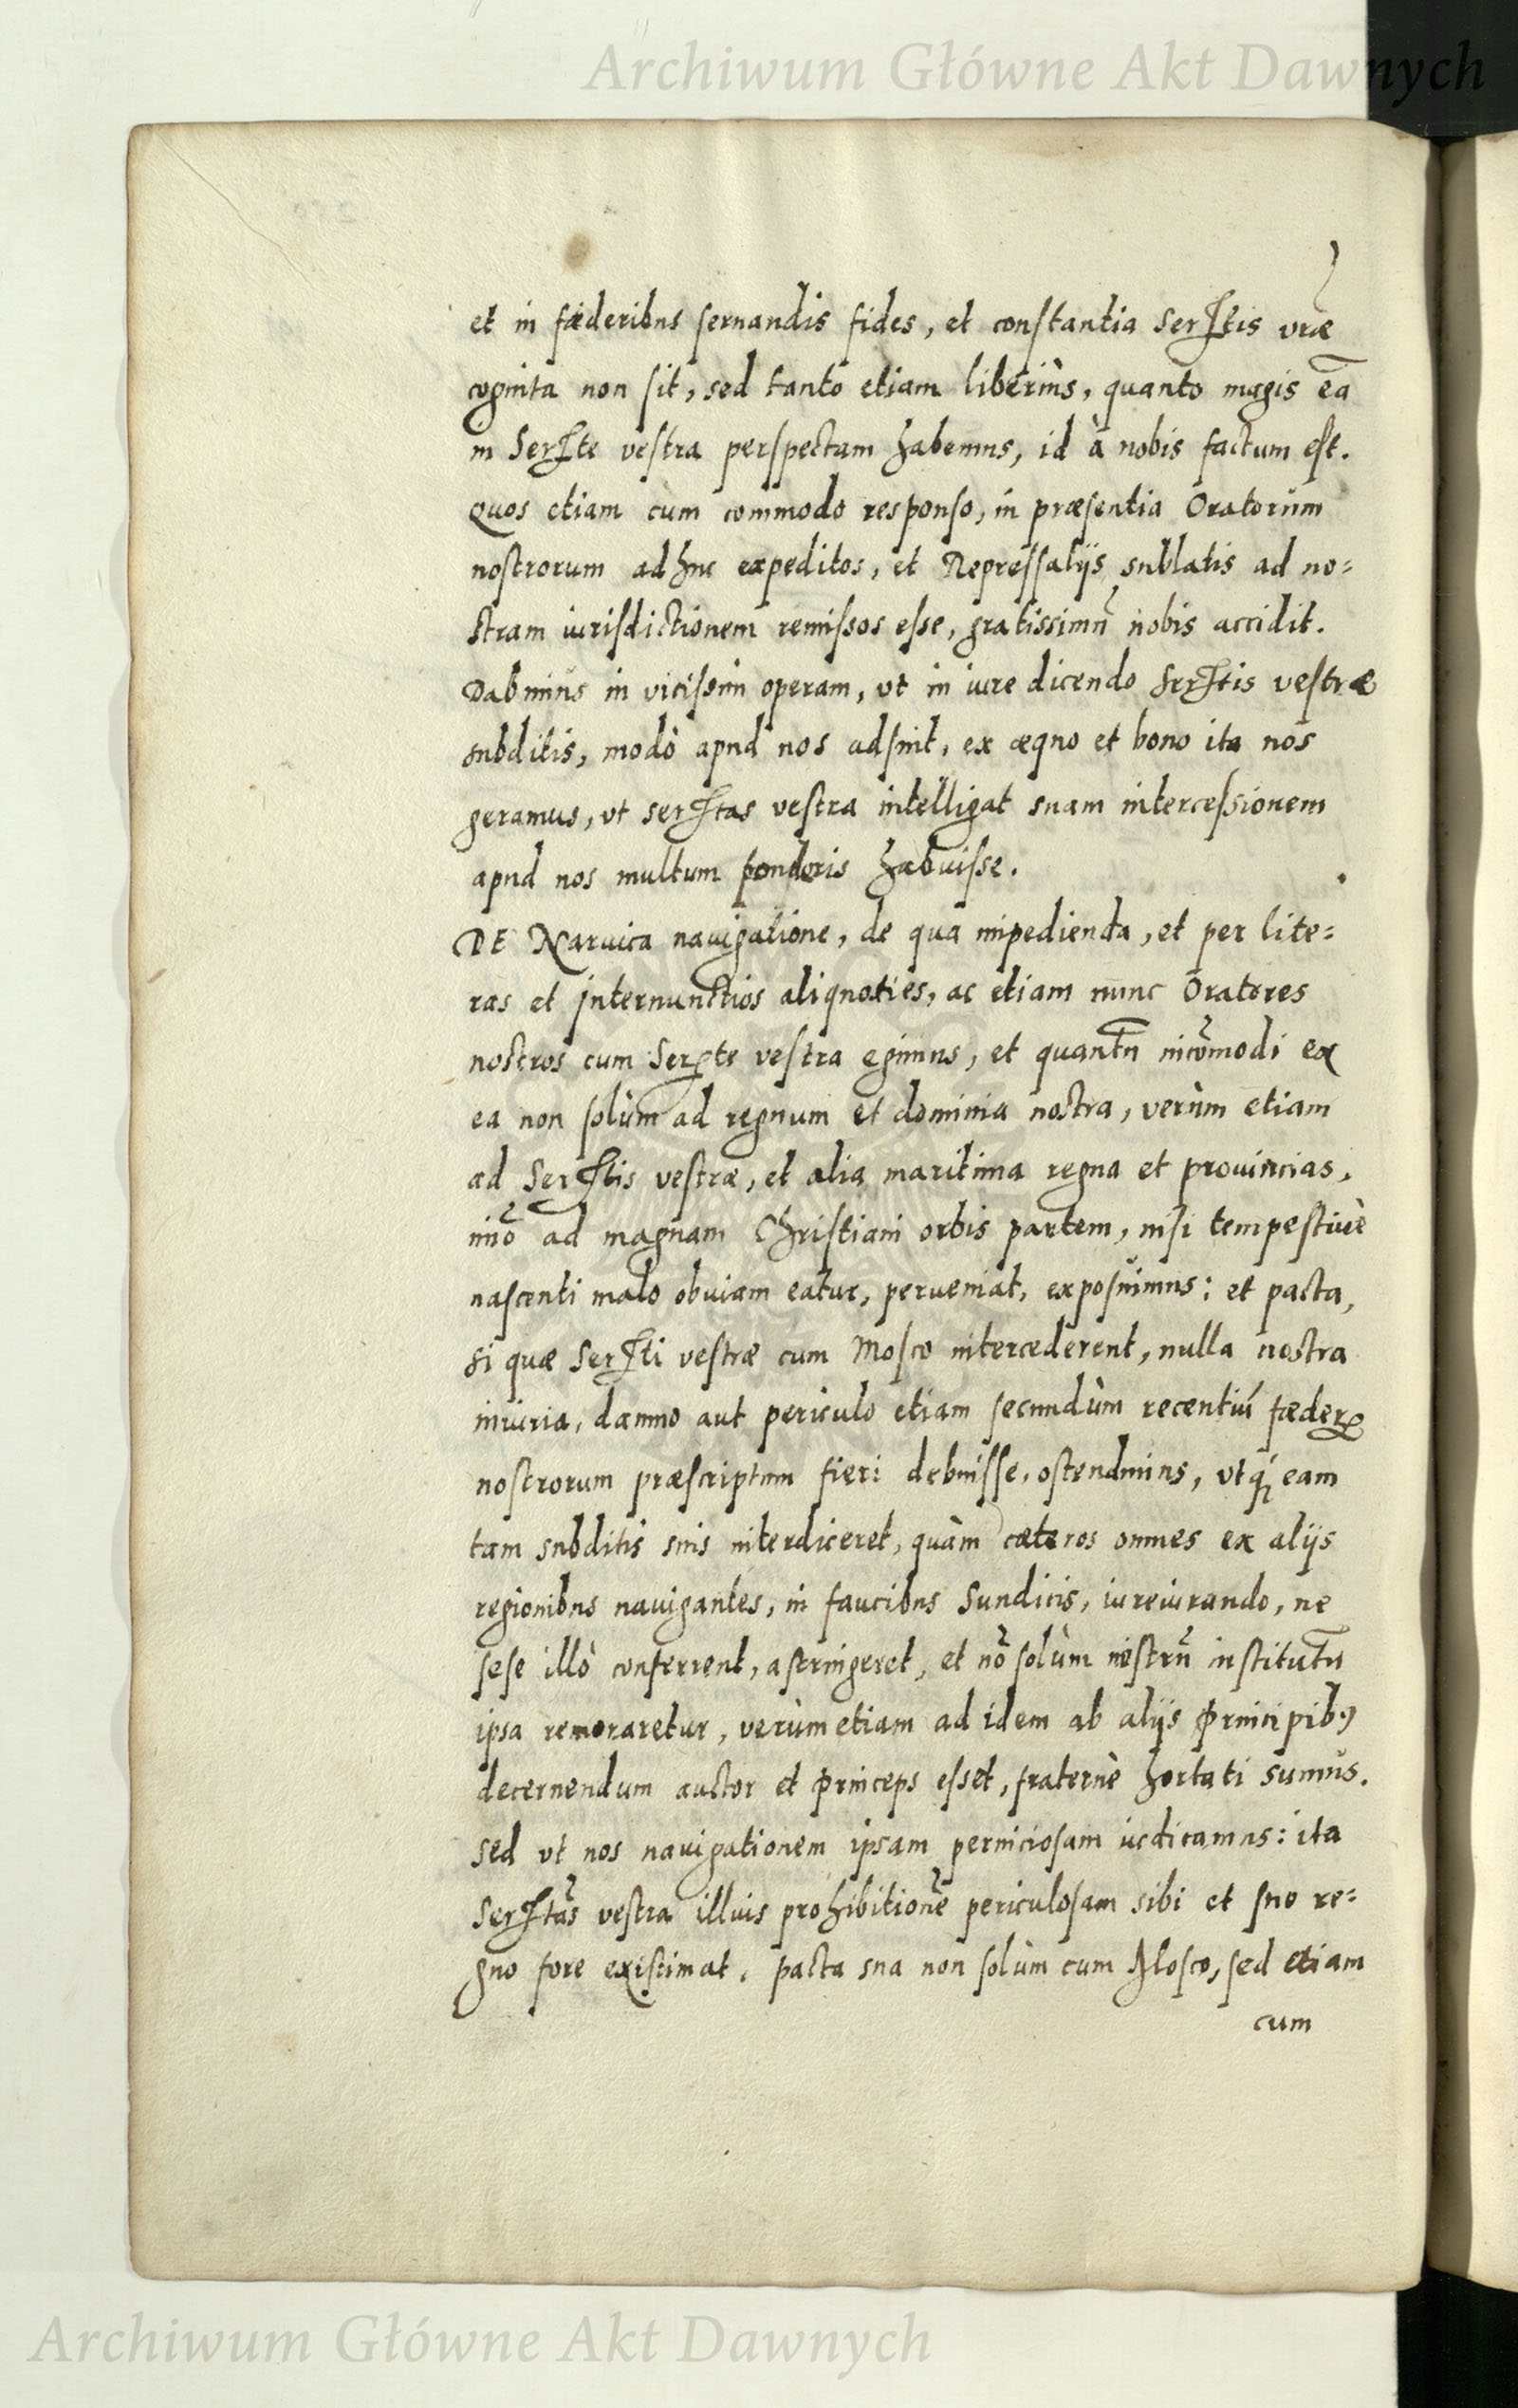 Archiwum Główne Akt Dawnych
et in fæderibus seruandis fides, et constantia Serttis vræ
cognita non sit, sed tanto etiam liberius, quanto magis eā
in Sertte vestra perspectam habemus, id à nobis factum est.
Quos etiam cum commodo responso, in præsentia Oratorum
nostrorum adhuc expeditos, et Repressalijs sublatis ad no=
stram iurisdictionem remissos esse, gratissimū nobis accidit.
Dabimus in vicissim operam, vt in iure dicendo Serttis vestræ
subditis, modò apud nos adsint, ex æquo et bono ita nos
geramus, vt serttas vestra intelligat suam intercessionem
apud nos multum ponderis habuisse.
DE Naruica nauigatione, de qua impedienda, et per lite=
ras et internunctios aliquoties, ac etiam nunc Oratores
nostros cum Serte vestra egimus, et quantū incōmodi ex
ea non solùm ad regnum et dominia nostra, verùm etiam
ad Serttis vestræ, et alia maritima regna et prouincias,
imō ad magnam Christiani orbis partem, nisi tempestiuè
nascenti malo obuiam eatur, perueniat, exposuimus: et pacta,
si quæ Sertti vestræ cum Mosco intercederent, nulla nostra
iniuria, damno aut periculo etiam secundùm recentiū fæderꝝ
nostrorum præscriptum fieri debuisse, ostendimus, vtq́ꝫ eam
tam subditis suis interdiceret, quàm cæteros omnes ex alijs
regionibus nauigantes, in faucibus Sundicis, iureiurando, ne
sese illò conferrent, astringeret, et nō solùm nostrū institutū
ipsa remoraretur, verùm etiam ad idem ab alijs Principibꝰ
decernendum auctor et princeps esset, fraternè hortati sumus.
Sed vt nos nauigationem ipsam perniciosam iudicamus: ita
Serttas vestra illius prohibitionē periculosam sibi et suo re=
gno fore existimat. pacta sua non solùm cum Mosco, sed etiam
cum
Archiwum Główne Akt Dawnych